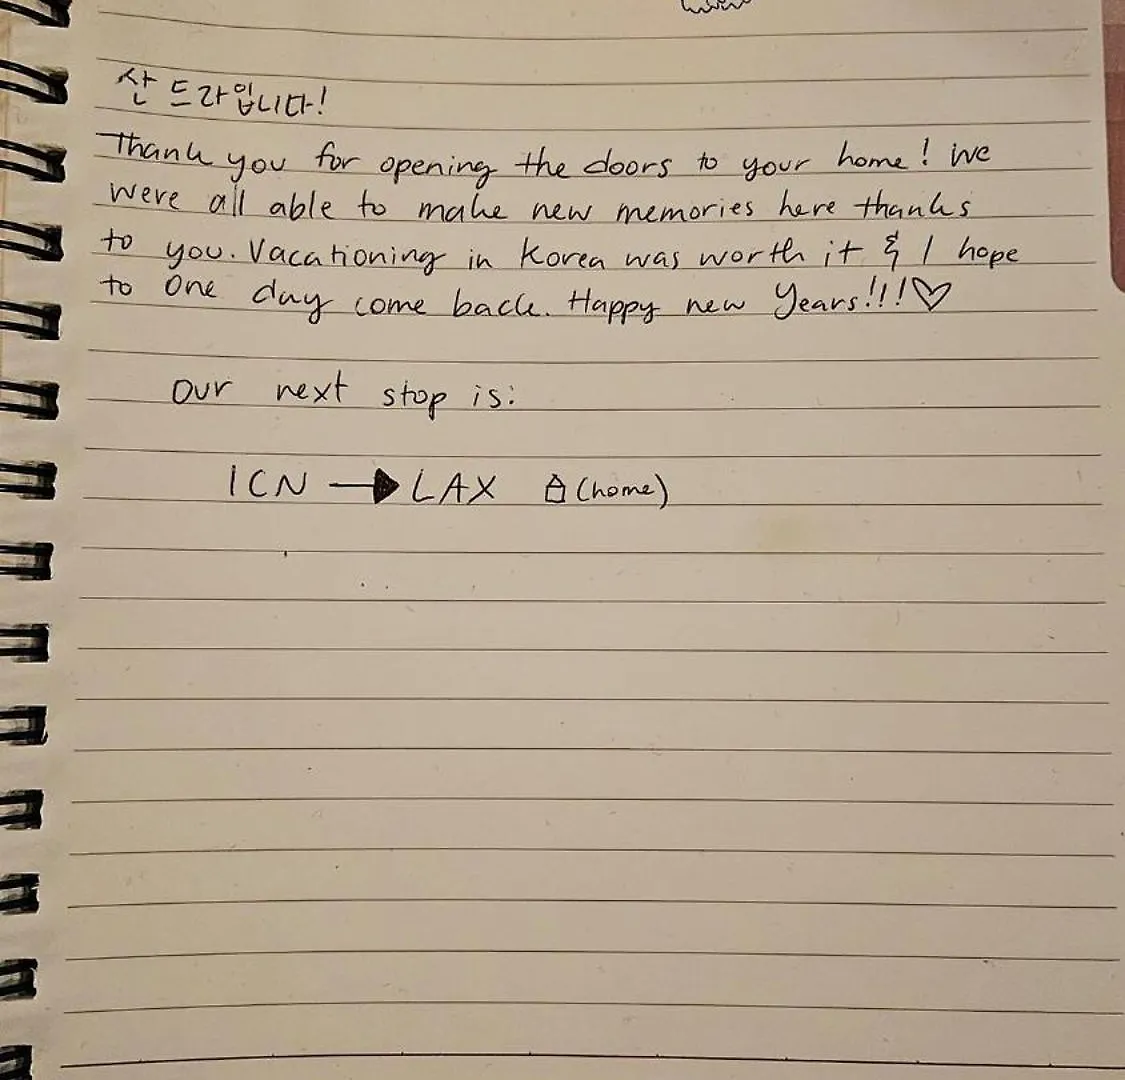 산드라입니다!
Thank you for opening the doors to your home! We
were all able to make new memories here thanks
to you. Vacationing in Korea was worth it & I hope
to one day come back. Happy new Years!!!♡
Our next stop is:
ICN → LAX (home)